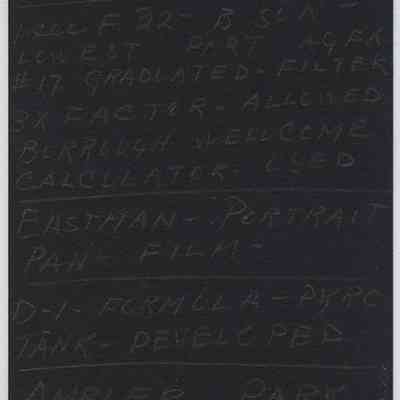 F 22 - B SUN -
LOWEST PART AGFA
#17 GRADUATED - FILTER
3X FACTOR - ALLOWED
BURROUGH WELLCOME
CALCULATOR - USED
EASTMAN - PORTRAIT
PAN - FILM -
D-1 - FORMULA - PYRO
TANK - DEVELOPED
AMBLER PARK